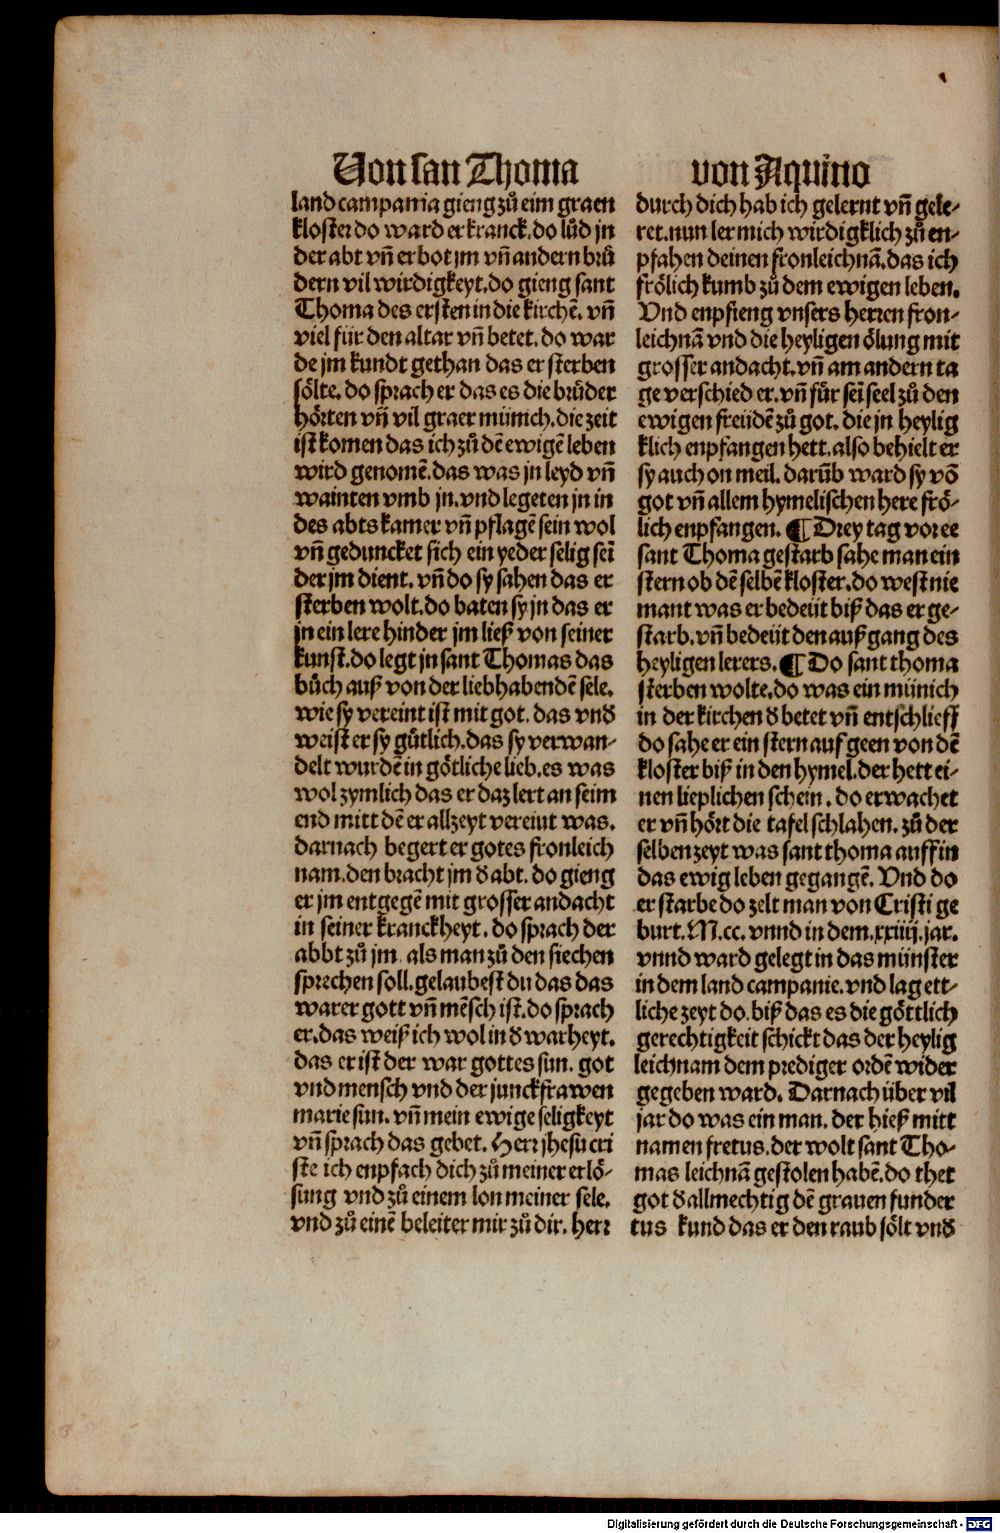 Von san Thoma von Aquino
land campania gieng zů eim graen
kloster do ward er kranck. do lůd jn
der abt vñ erbot jm vñ andern brů
dern vil wirdigkeyt. do gieng sant
Thoma des ersten in die kirchē. vñ
viel für den altar vñ betet. do war
de jm kundt gethan das er sterben
sölte. do sprach er das es die brůder
hörten vñ vil graer münich. die zeit
ist komen das ich zů dē ewigē leben
wird genomē. das was jn leyd vñ
wainten vmb jn. vnd legeten jn in
des abts kamer vñ pflagē sein wol
vñ geduncket sich ein yeder selig sei̅
der jm dient. vñ do sy sahen das er
sterben wolt. do baten sy jn das er
jn ein lere hinder jm ließ von seiner
kunst. do legt jn sant Thomas das
bůch auß von der liebhabendē sele.
wie sy vereint ist mit got. das vnd
weist er sy gůtlich. das sy verwan-
delt wurdē in götliche lieb. es was
wol zymlich das er daz lert an seim
end mitt dē er allzeyt vereint was.
darnach begert er gotes fronleich
nam. den bracht jm d̕ abt. do gieng
er jm entgegē mit grosser andacht
in seiner kranckheyt. do sprach der
abbt zů jm als man zů den siechen
sprechen soll. gelaubest du das das
warer gott vñ mēsch ist. do sprach
er. das weiß ich wol in d̕ warheyt.
das er ist der war gottes sun. got
vnd mensch vnd der junckfrawen
marie sun. vñ mein ewige seligkeyt
vñ sprach das gebet. Herr jhesu cri
ste ich enpfach dich zů meiner erlö-
sung vnd zů einem lon meiner sele.
vnd zů einē beleiter mir zů dir. herr
durch dich hab ich gelernt vñ gele-
ret. nun ler mich wirdigklich zů en-
pfahen deinen fronleichnā. das ich
frölich kumb zů dem ewigen leben.
Vnd enpfieng vnsers herren fron-
leichnā vnd die heyligen ölung mit
grosser andacht. vñ am andern ta
ge verschied er. vñ für sei̅ seel zů den
ewigen freüdē zů got. die jn heylig
klich enpfangen hett. also behielt er
sy auch on meil. darūb ward sy vō
got vñ allem hymelischen here frö-
lich enpfangen. ¶ Drey tag vor ee
sant Thoma gestarb sahe man ein
stern ob dē selbē kloster. do west nie
mant was er bedeüt biß das er ge-
starb. vñ bedeüt den außgang des
heyligen lerers. ¶ Do sant thoma
sterben wolte. do was ein münich
in der kirchen d̕ betet vñ entschlieff
do sahe er ein stern auf geen von dē
kloster biß in den hymel. der hett ei-
nen lieplichen schein. do erwachet
er vñ hört die tafel schlahen. zů der
selben zeyt was sant thoma auff in
das ewig leben gegangē. Vnd do
er starbe do zelt man von Cristi ge
burt. M.cc. vnnd in dem. xxiiij. jar.
vnnd ward gelegt in das münster
in dem land campanie. vnd lag ett-
liche zeyt do. biß das es die göttlich
gerechtigkeit schickt das der heylig
leichnam dem prediger ordē wider
gegeben ward. Darnach über vil
jar do was ein man. der hieß mitt
namen fretus. der wolt sant Tho-
mas leichnā gestolen habē. do thet
got d̕ allmechtig dē grauen funder
tus kund das er den raub sölt vnd̕
Digitalisierung gefördert durch die Deutsche Forschungsgemeinschaft - DFG